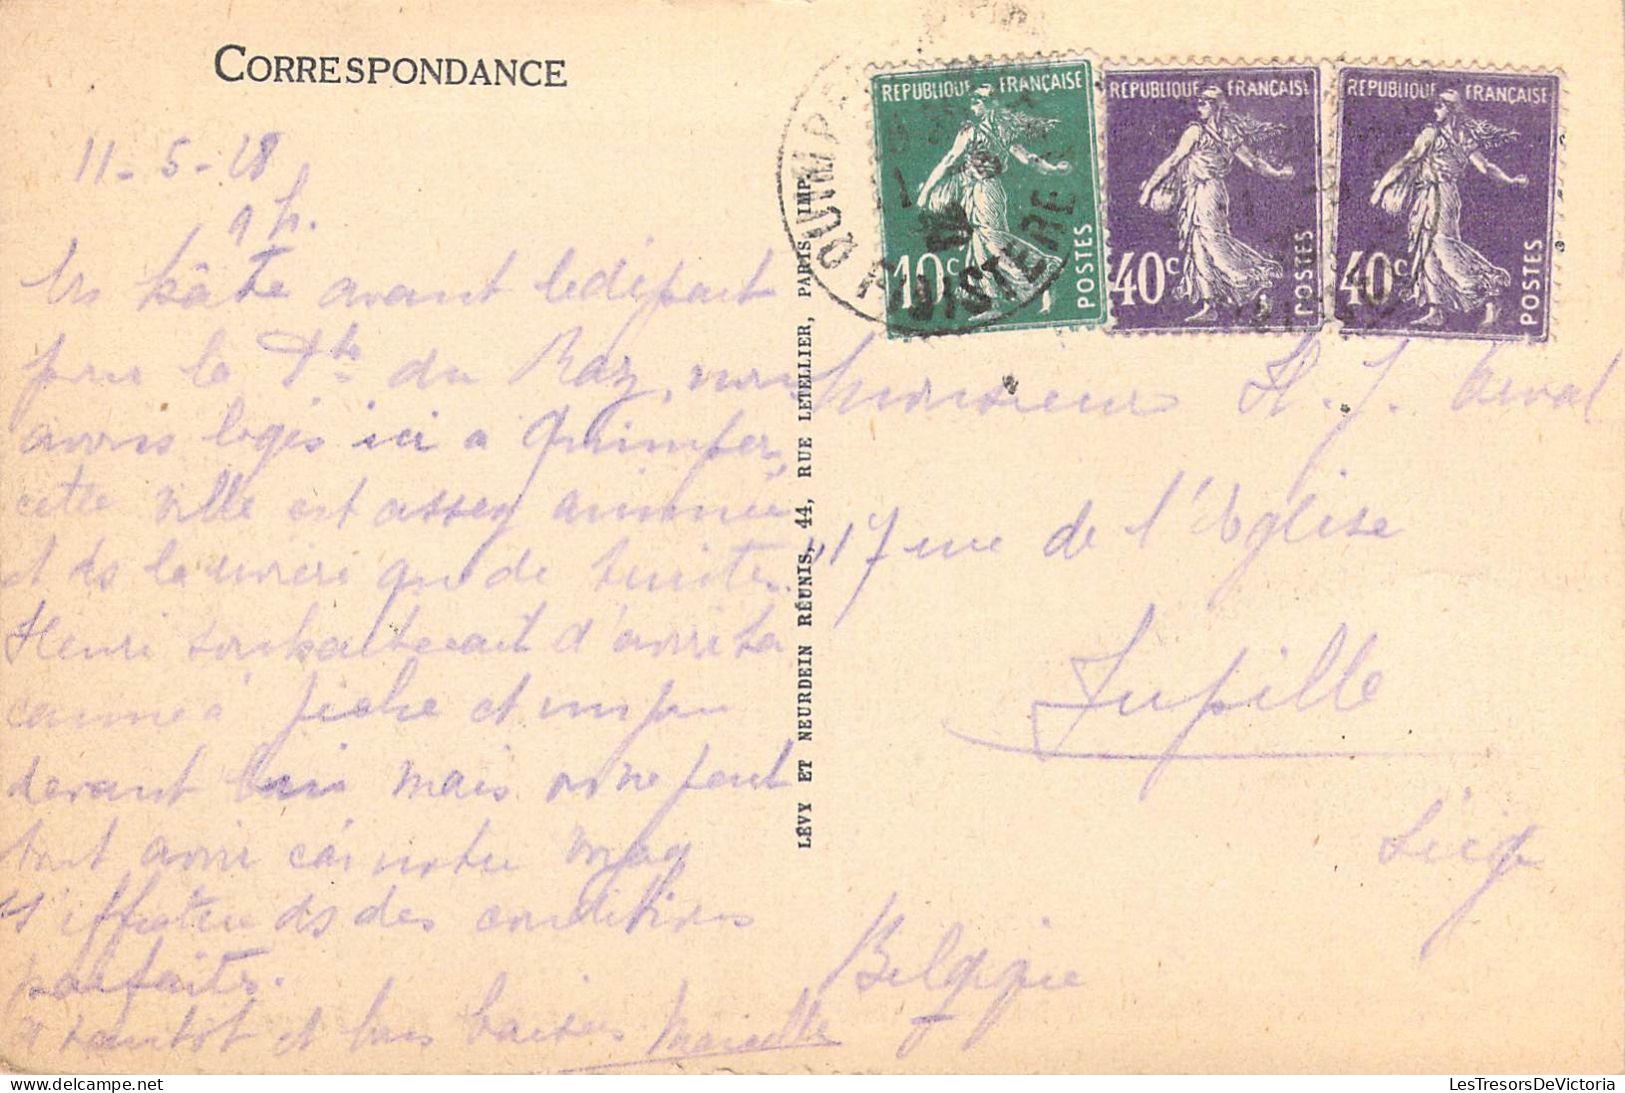 CORRESPONDANCE
11-5-28
9 h.
En hâte avant le départ
pour le Pte du Raz, nous
avons logés ici a Quimper,
cette ville est assez animée
et ds la
Henri souhaiterait d'
canne à pêche et un peu
devant lui mais on ne peut
tout avoir car notre
s'effectue ds des conditions
parfaites.
A tantôt et bons baisers Marcelle
LÉVY ET NEURDEIN RÉUNIS, 44, RUE LETELLIER, PARIS IMP.
QUIMPER
FINISTERE
REPUBLIQUE FRANÇAISE
10c
POSTES
REPUBLIQUE FRANÇAISE
40c
POSTES
REPUBLIQUE FRANÇAISE
40c
POSTES
Monsieur H. J.
17 rue de l'Eglise
Jupille
Liége
Belgique
LesTresorsDeVictoria